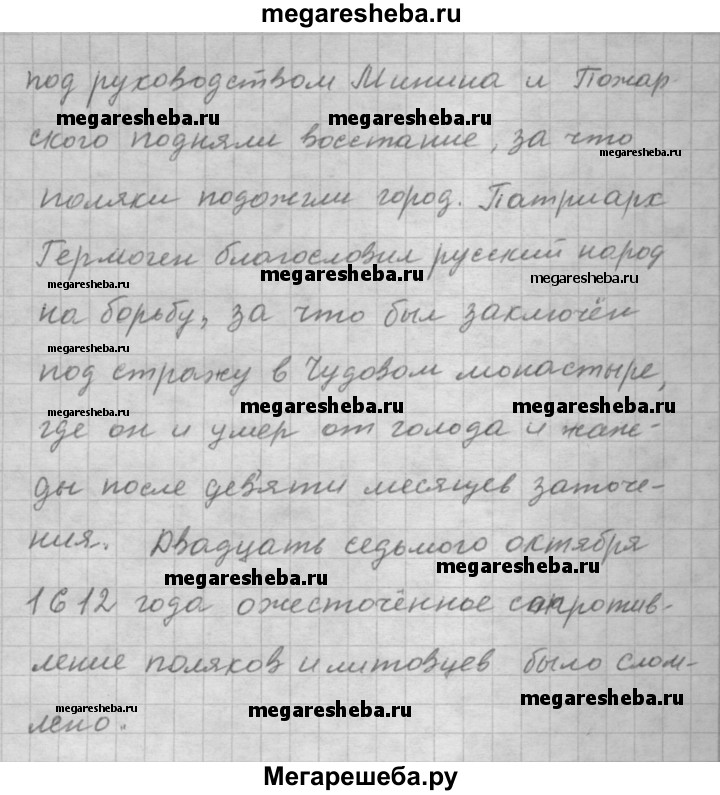 megaresheba.ru
под руководством Минина и Пожар-
megaresheba.ru megaresheba.ru
ского подняли восстание, за что
megaresheba.ru
поляки подожгли город. Патриарх
Гермоген благословил русский народ
megaresheba.ru megaresheba.ru megaresheba.ru
на борьбу, за что был заключён
megaresheba.ru
под стражу в Чудовом монастыре,
megaresheba.ru megaresheba.ru megaresheba.ru
где он и умер от голода и жаж-
ды после девяти месяцев заточе-
ния. Двадцать седьмого октября
megaresheba.ru megaresheba.ru
1612 года ожесточённое сопротив-
ление поляков и литовцев было слом-
megaresheba.ru megaresheba.ru megaresheba.ru
лено.
Мегарешеба.ру